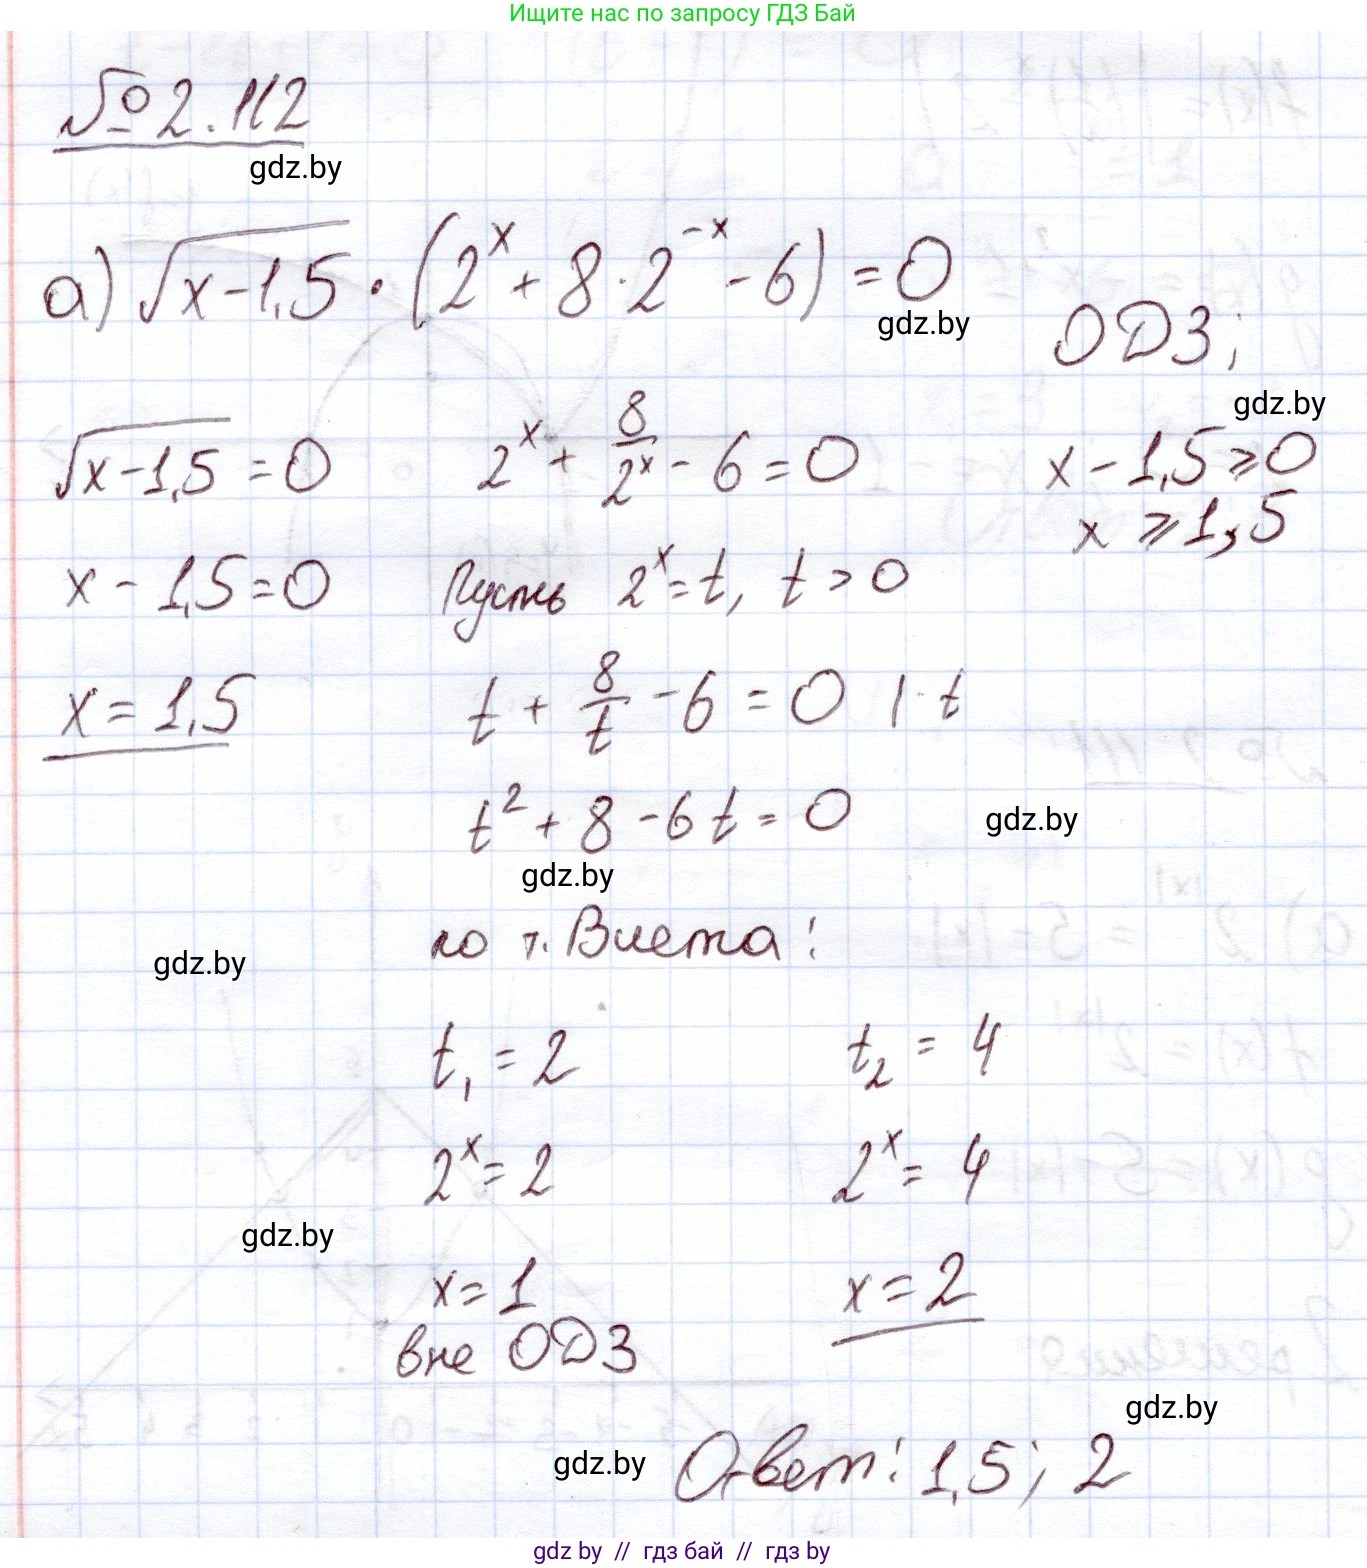 Ищите нас по запросу ГДЗ Бай
№ 2.112
gdz.by
а) √(x-1,5) · (2^x + 8·2^(-x) - 6) = 0
gdz.by
ОДЗ;
gdz.by
√(x-1,5) = 0   2^x + 8/2^x - 6 = 0   x - 1,5 ⩾ 0
x ⩾ 1,5
x - 1,5 = 0   Пусть 2^x = t, t > 0
x = 1,5   t + 8/t - 6 = 0 | · t
t² + 8 - 6t = 0
gdz.by
gdz.by
по т. Виета:
gdz.by
t₁ = 2   t₂ = 4
2^x = 2   2^x = 4
gdz.by
x = 1   x = 2
вне ОДЗ
gdz.by
Ответ: 1,5; 2
gdz.by
gdz by // гдз бай // гдз by